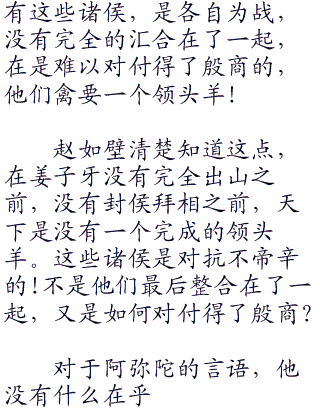 有这些诸侯，是各自为战，
没有完全的汇合在了一起，
在是难以对付得了殷商的，
他们禽要一个领头羊！
赵如壁清楚知道这点，
在姜子牙没有完全出山之
前，没有封侯拜相之前，天
下是没有一个完成的领头
羊。这些诸侯是对抗不帝辛
的！不是他们最后整合在了一
起，又是如何对付得了殷商？
对于阿弥陀的言语，他
没有什么在乎